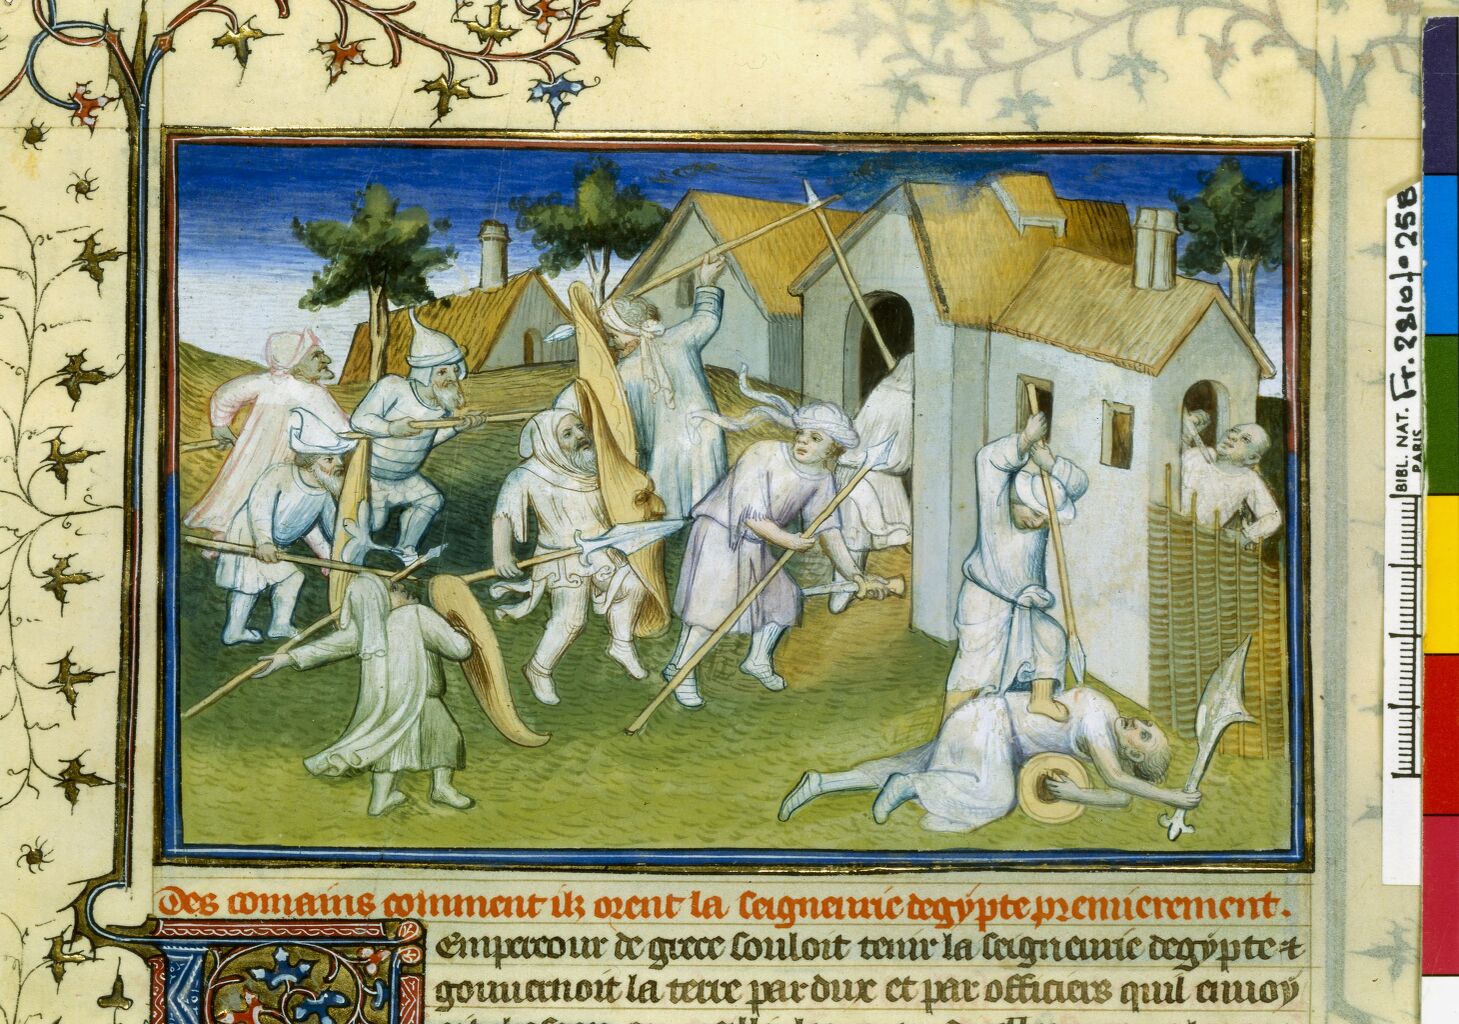 Des comains comment ilz orent la seigneurie degypte premierement.
Empereour de grece souloit tenir la seigneurie degypte et
gouuernoit la terre par dux et par officiers quil enuoy
BIBL. NAT. Fr. 2810 fo 258
PARIS